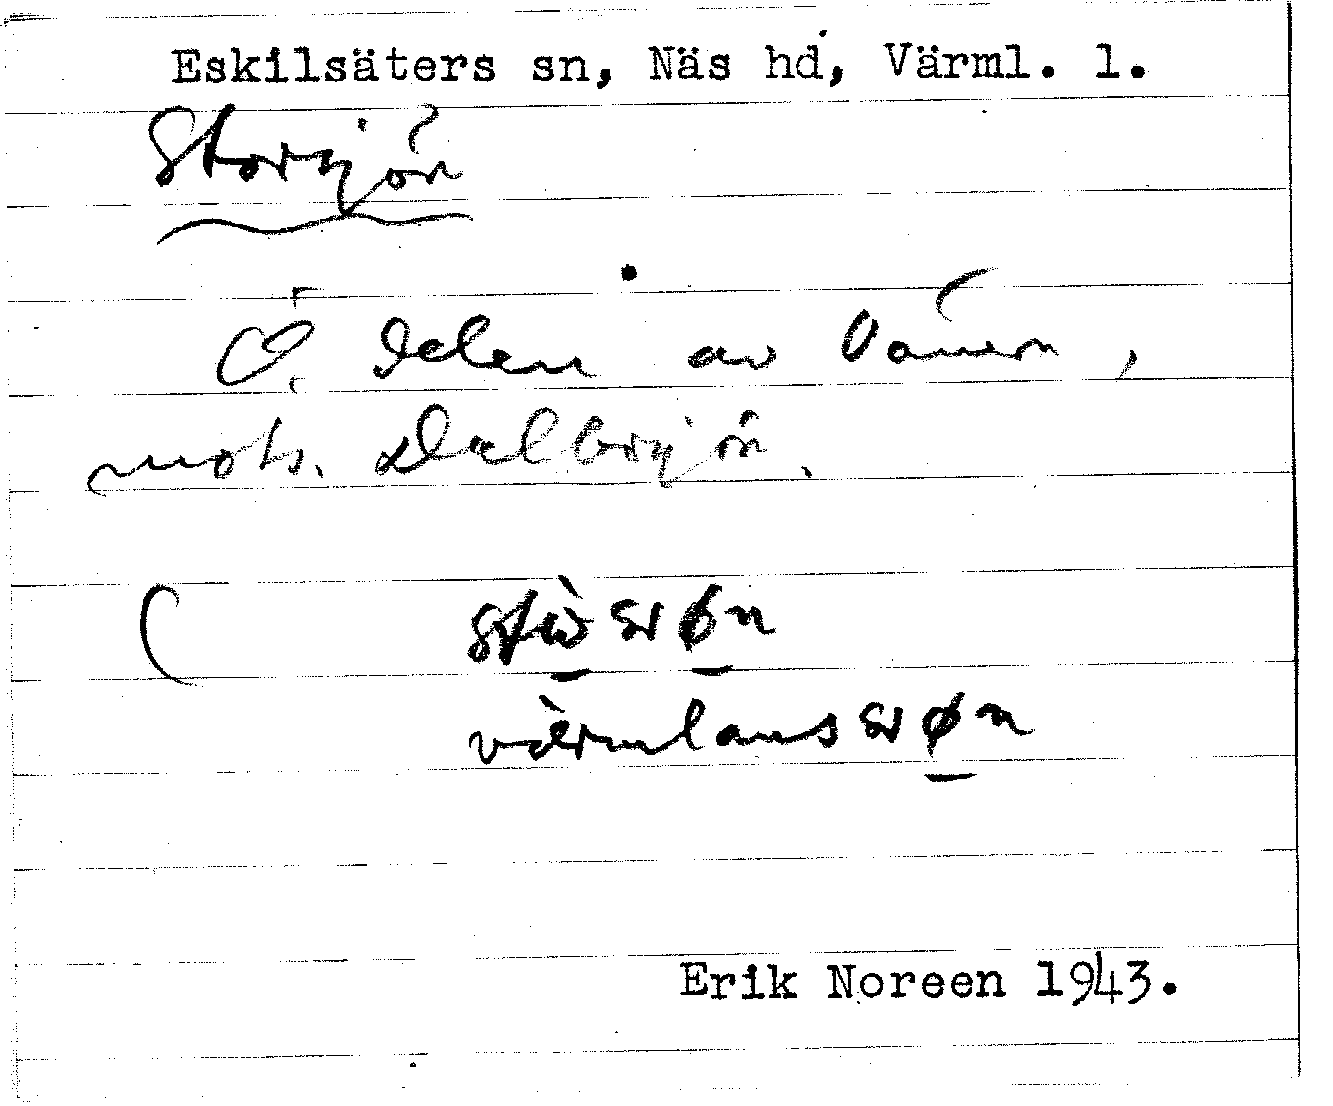 Eskilsäters sn, Näs hd, Värml. l.
Storsjön
Ö. delen av Vänern,
mots. Dalbosjön.
Erik Noreen 1943.